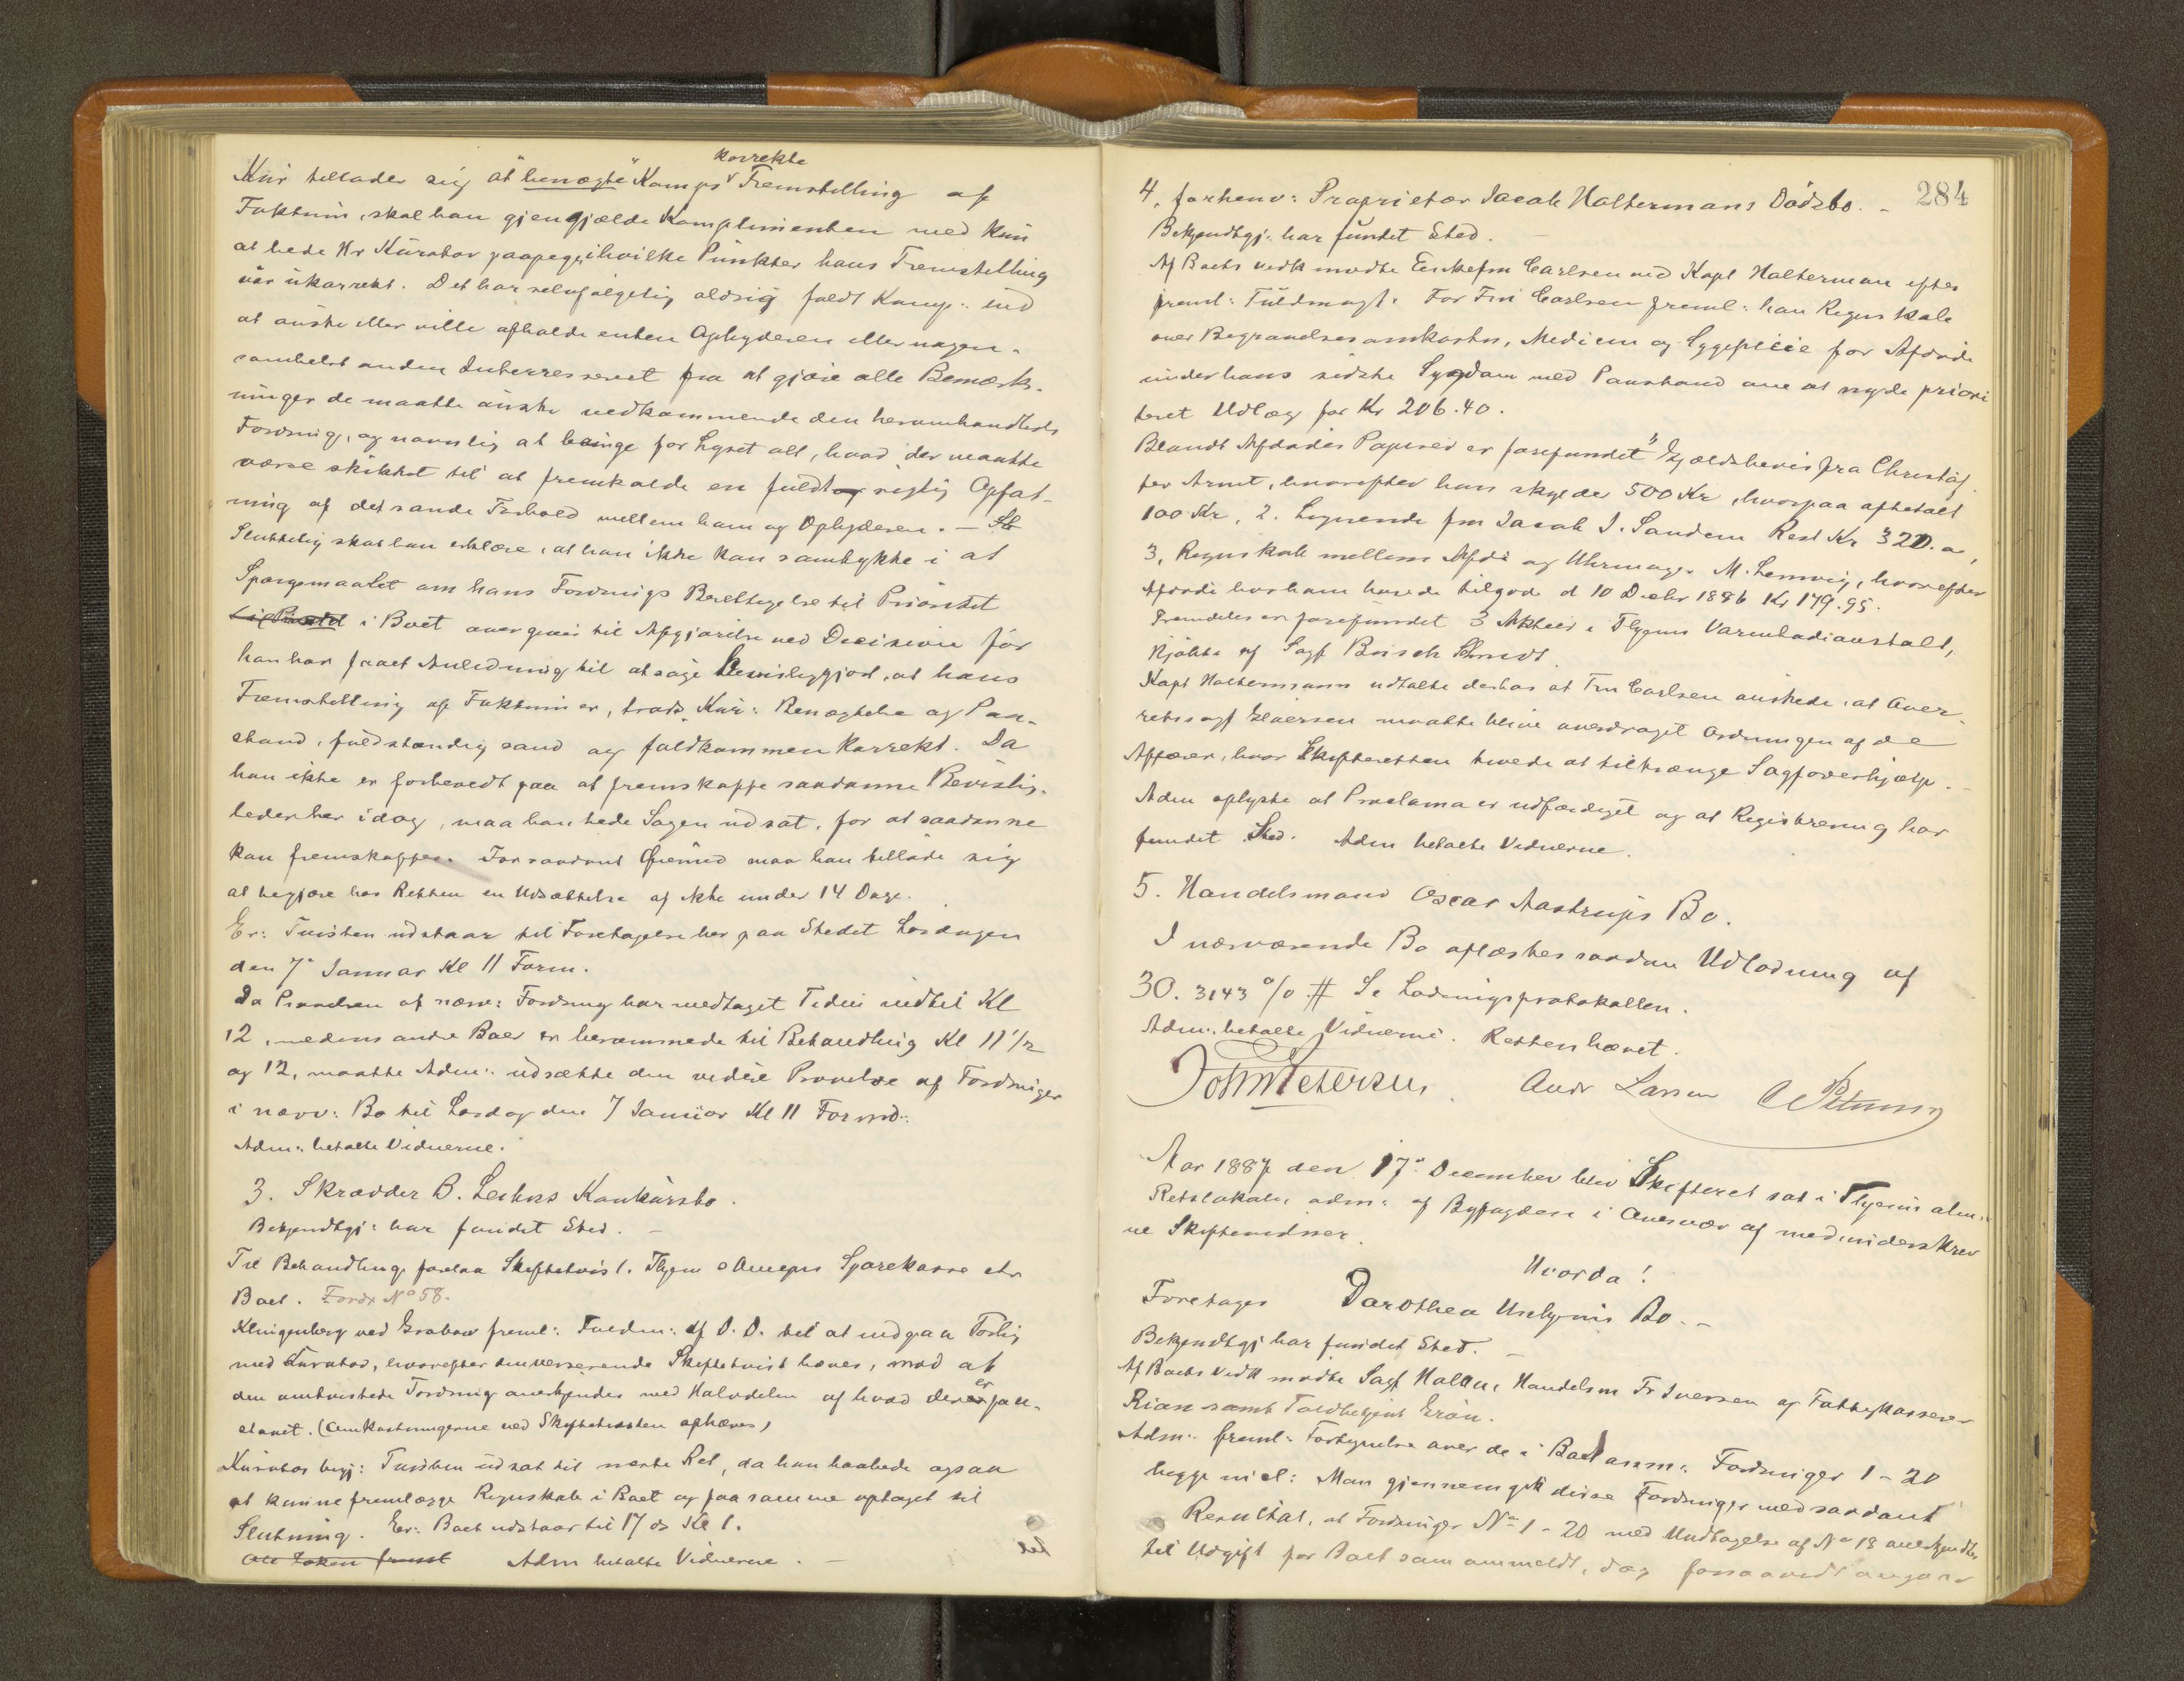 korrekte
Kur tillader sig at "benægte" Kamps Fremstilling af
Faktum, skal han gjengjælde Komplimenten med kun
at bede Hr Kurator paapege, i hvilke Punkter hans Fremstilling
var ukorrekt. Det har selvfølgelig aldrig faldt Kamp: ind
at ønske eller ville afholde enten Opbyderen eller nogen-
somhelst anden Interresseret fra at gjøre alle Bemærk-
ninger de maatte ønske vedkommende den heromhandlede
Fordring, og navnlig at bringe for Lyset alt, hvad der maatte
være skikket til at fremkalde en fuldt og rigtig Opfat-
ning af det sande Forhold mellem ham og Opbyderen. –
Sluttelig skal han erklære, at han ikke kan samtykke i at
Spørgsmaalet om hans Fordrings Berettigelse til Prioritet
i Boet overgives til Afgjørelse ved Decision før
han har faaet Anledning til at søge bevisliggjort, at hans
Fremstilling af Faktum er, trods Kur: Benægtelse og Paa-
stand, fuldstændig sand og fuldkommen korrekt. Da
han ikke er forberedt paa at fremskaffe saadanne Bevislig-
heder her idag, maa han bede Sagen udsat, for at saadanne
kan fremskaffes. For saadant Øiemed maa han tillade sig
at begjære hos Retten en Udsættelse af ikke under 14 Dage.
Er: Tvisten udstaar til Foretagelse her paa Stedet Lørdagen
den 7de Januar Kl 11 Form.
Da Prøvelsen af nærv: Fordring har medtaget Tiden indtil Kl
12, medens andre Boer er berammede til Behandling Kl 11½
og 12, maatte Adm: udsætte den videre Prøvelse af Fordringer
i nærv: Bo til Lørdag den 7 Januar Kl 11 Formd:
Adm: betalte Vidnerne.
3. Skrædder B. Konkursbo.
Bekjendtgj: har fundet Sted. –
Til Behandling forelaa Skiftetvist. Thjem & Omegns Sparekasse ctr
Boet. Fordr No 58.
Klingenberg ved Grabow freml: Fuldm: af D. D. til at indgaa Forlig
med Kurator, hvorefter den verserende Skiftetvist hæves, mod at
den omtvistede Fordring anerkjendes med Halvdelen af hvad der er paa-
stævnt. (Omkostningerne ved Skiftetvisten ophæves)
Kurator begj: Tvisten udsat til næste Ret, da han haabede ogsaa
at kunne fremlægge Regnskab i Boet og faa samme optaget til
Slutning. Er: Boet udstaar til 17 ds Kl 1.
Adm betalte Vidnerne. –
284
4. forhenv: Proprietær Jacob Holtermans Dødsbo. –
Bekjendtgj: har fundet Sted. –
Af Boets Vedk mødte Enkefru Carlsen ved Kapt Holterman efter
freml: Fuldmagt. For Fru Carlsen freml: han Regnskab
over Begravelsesomkostn, Medicin og Sygepleie for Afdøde
under hans sidste Sygdom med Paastand om at nyde priori
teret Udlæg for Kr 206.40.
Blandt Afdødes Papirer er forefundet 1, Gjældsbevis fra Christof
fer Arnt, hvorefter han skylder 500 Kr, hvorpaa afbetalt
100 Kr, 2. Lignende fra Jacob J. Sandem Rest Kr 320.00,
3, Regnskab mellem Afdø og Uhrmager M. Lemvig, hvorefter
Afdøde hos ham havde tilgode d 10 Decbr 1886 Kr 179.95.
Fremdeles er forefundet 3 Aktier i Thjems Varmbadianstalt,
Kjøbte af Sagf Busch
Kapt Holtermann udtalte derhos at Fru Carlsen ønskede, at Over-
retssagf maatte blive overdraget Ordningen af de
Affærer, hvor Skifteretten havde at tiltrænge Sagførerhjælp. –
Adm oplyste at Proclama er udfærdiget og at Registrering har
fundet Sted. Adm betalte Vidnerne.
5. Handelsmand Oscar Aastrups Bo.
I nærværende Bo oplæstes saadan Udlodning af
30.3143 % # Se Lodningsprotokollen.
Adm: betalte Vidnerne. Retten hævet.
John Petersen. Andr Larsen
Aar 1887 den 17de December blev Skifteret sat i Thjems alm:
Retslokale, adm: af Byfogden i Overvær af medunderskrev
ne Skiftevidner.
Hvorda!
Foretages Dorothea Bo. –
Bekjendtgj har fundet Sted. –
Af Boets Vedk mødte Sagf Handelsm Fr Iversen og Fattigkasserer
Rian samt Toldbetjent Grøn.
Adm: freml: Fortegnelse over de i Boet anm: Fordringer 1–20
begge incl: Man gjennemgik disse Fordringer med saadant
Resultat, at Fordringer No 1–20 med Undtagelse af No 18 anerkjendtes
til Udgift for Boet som anmeldt, dog forsaavidt angaar